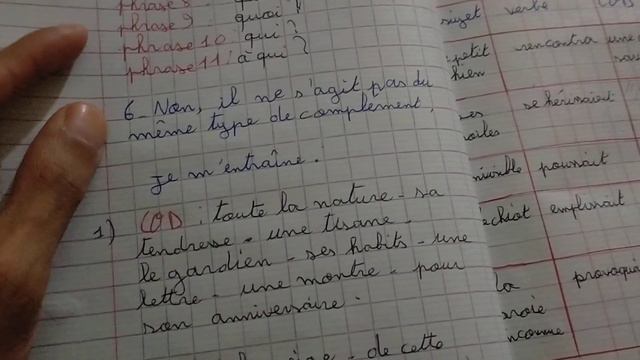 phrase 8
phrase 9 : quoi ?
phrase 10 : qui ?
phrase 11 : à qui ?
6_ Non, il ne s'agit pas du
même type de complement.
Je m'entraîne.
1) COD : toute la nature - sa
tendresse - une tisane -
le gardien - ses habits - une
lettre - une montre - pour
son anniversaire.
de cette
sujet verbe COD
petit rencontra une
chien
se hérissaient
voiles
pouvait
emplissait
la provoqua